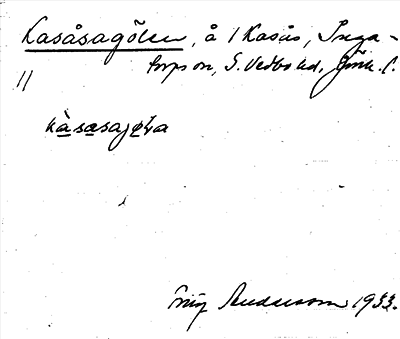 Kasåsagölen, å 1 Kasås, Inga-
torps sn, S. Vedbo hd, Jönk. l.
kàsasajø̀ɫa
Andersson 1933.